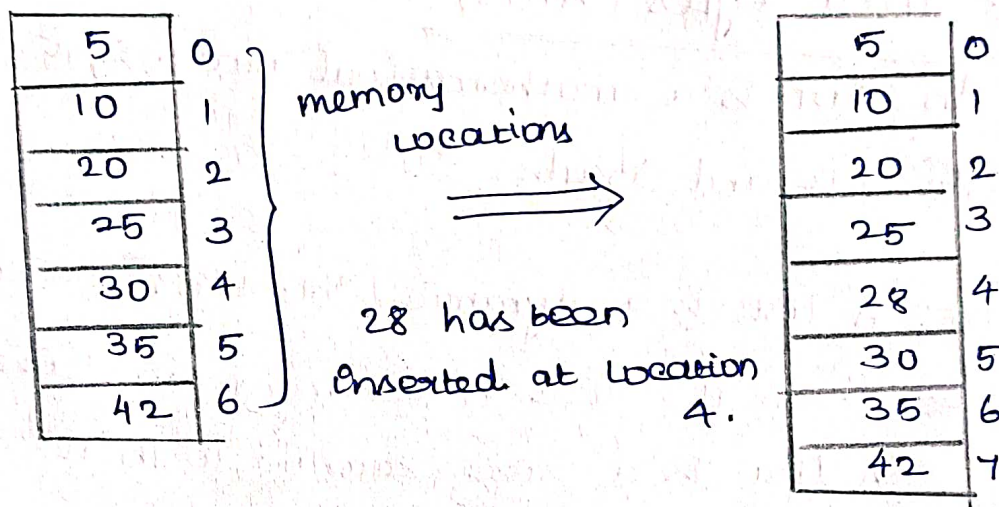 5 0
10 1
20 2
25 3
30 4
35 5
42 6
memory
Locations
28 has been
Inserted at Location
4.
5 0
10 1
20 2
25 3
28 4
30 5
35 6
42 7